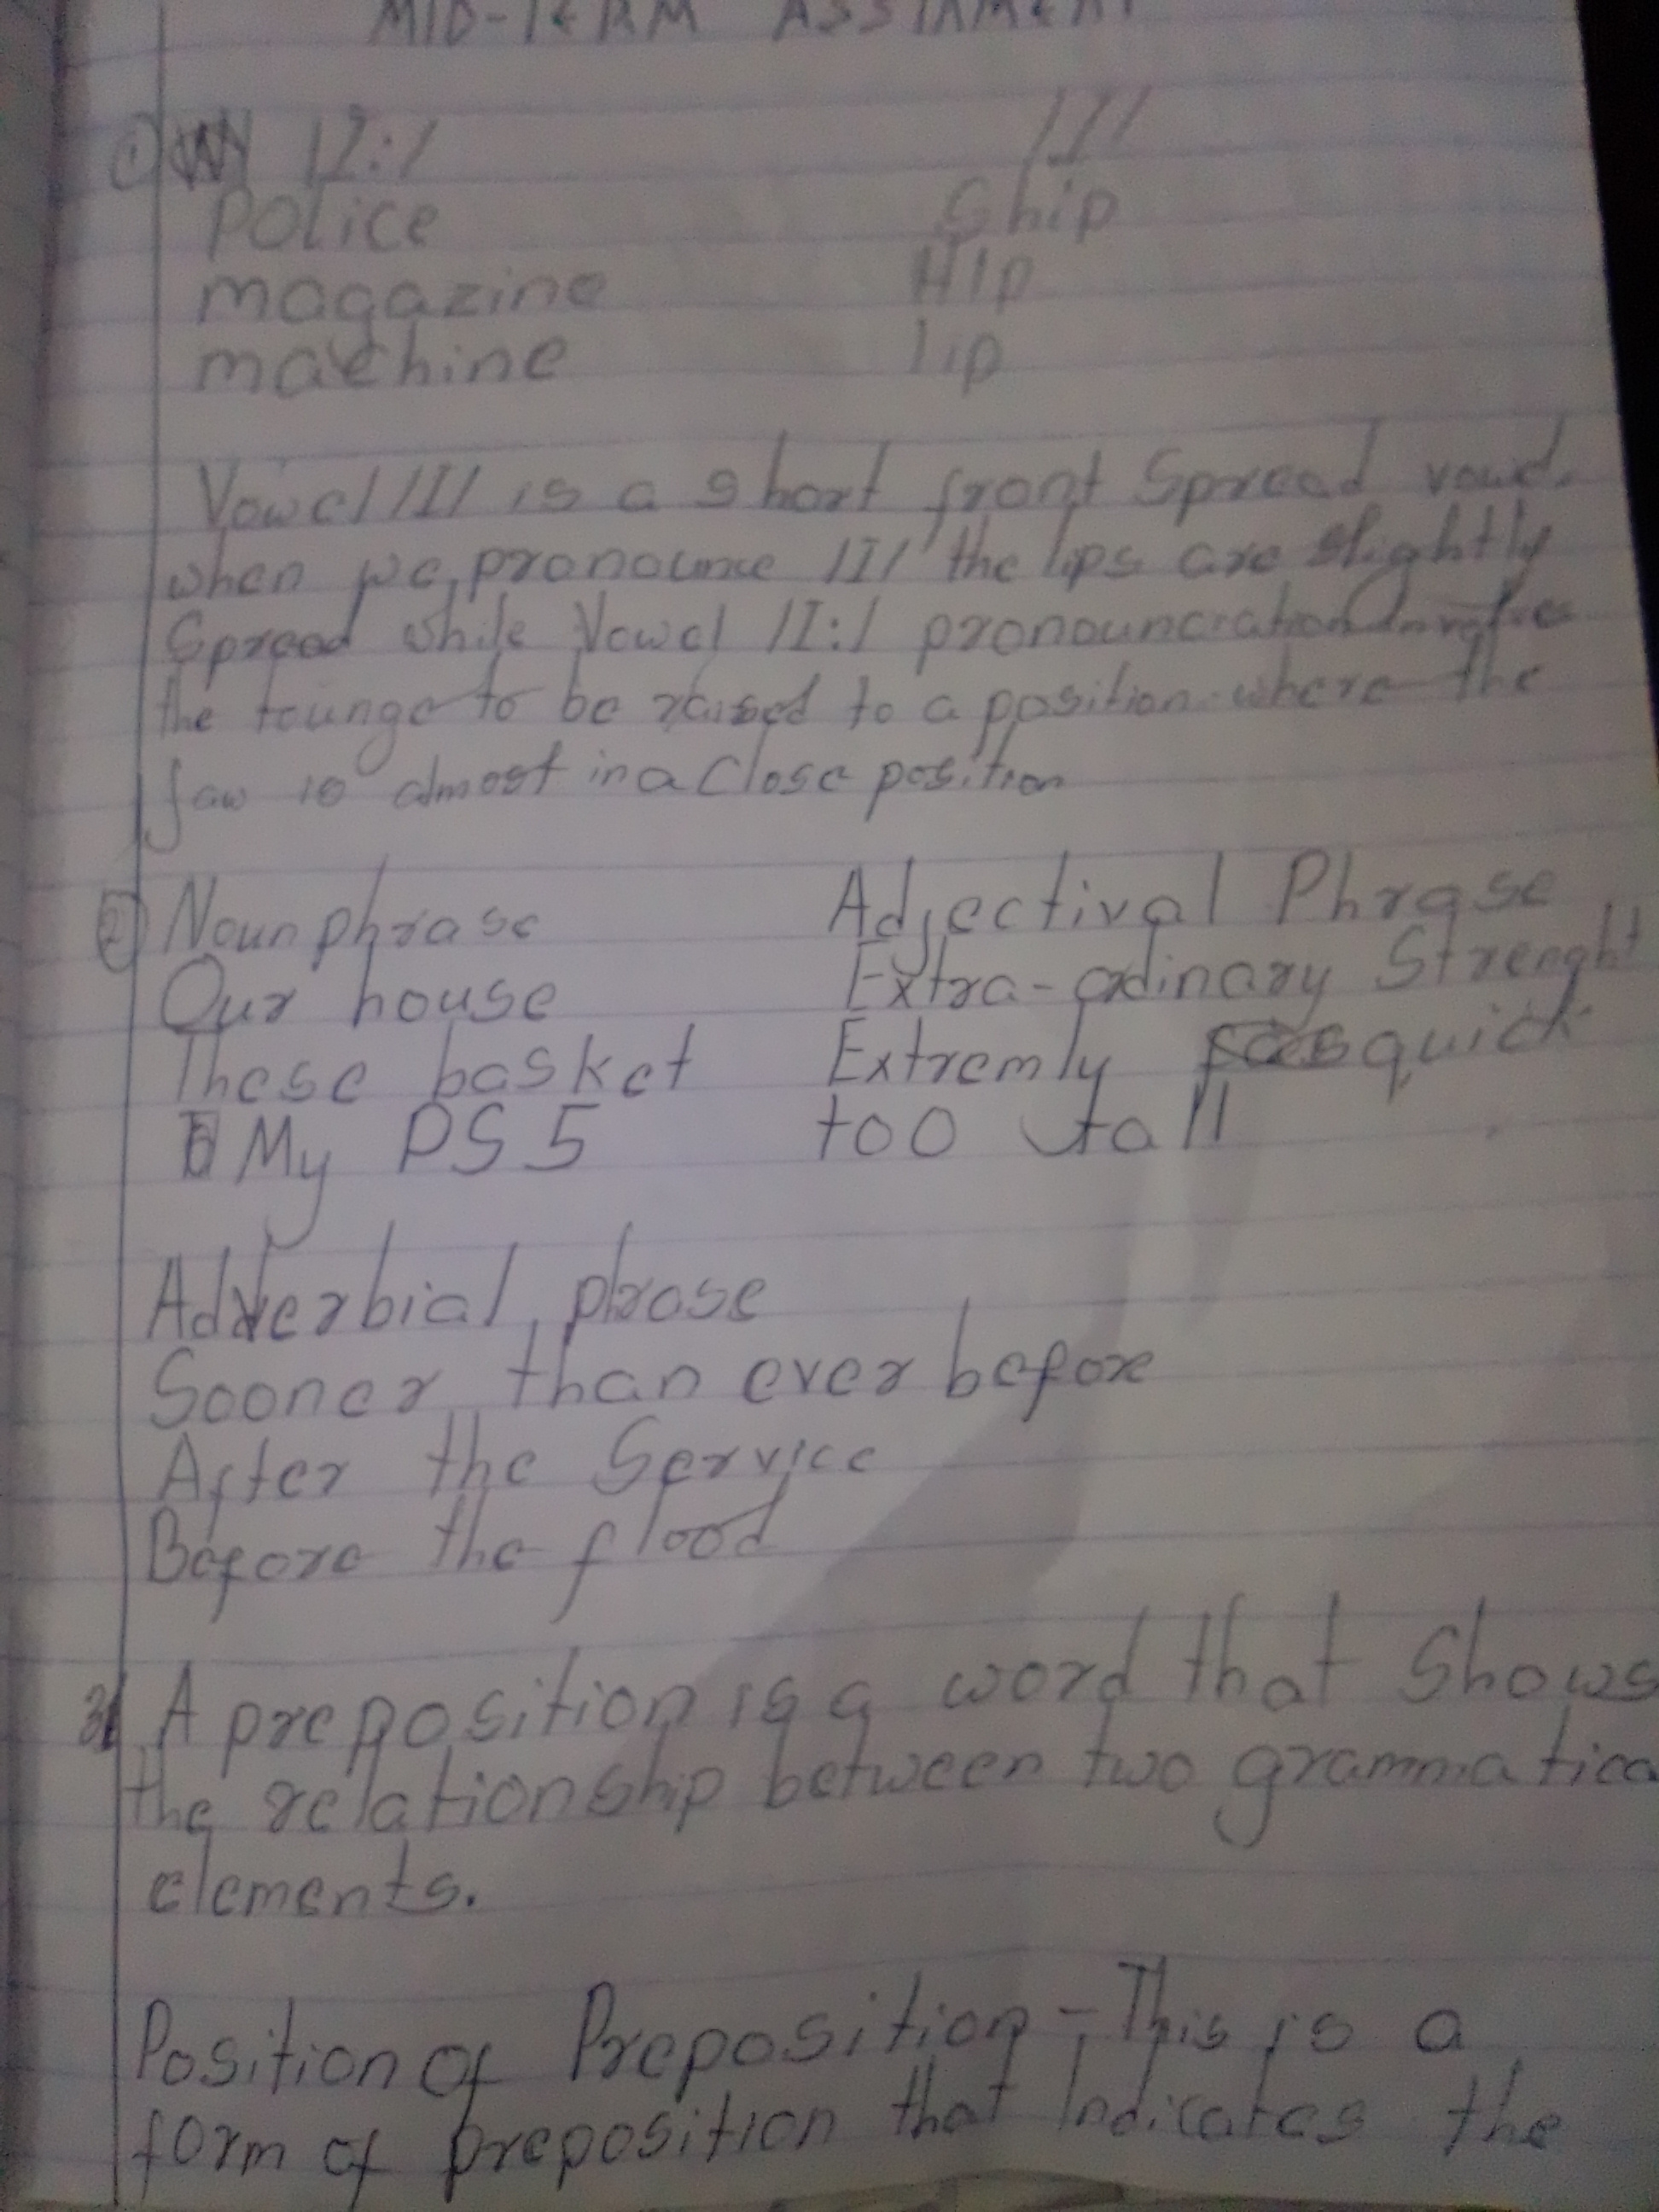 MID-TERM ASSINMENT
① /I:/ /I/
police Ship
magazine Hip
machine lip
Vowel /I/ is a short front Spread vowel.
when we pronounce /I/ the lips are slightly
Spread while Vowel /I:/ pronounciation
the tounge to be raised to a position where the
Jaw is almost in a Close position
② Noun phrase Adjectival Phrase
Our house Extra-ordinary Strenght
These basket Extremly quick
My PS5 too tall
Adverbial phrase
Sooner than ever before
After the Service
Before the flood
3 A preposition is a word that Shows
the relationship between two grammatica
elements.
Position of Preposition - This is a
form of preposition that Indicates the